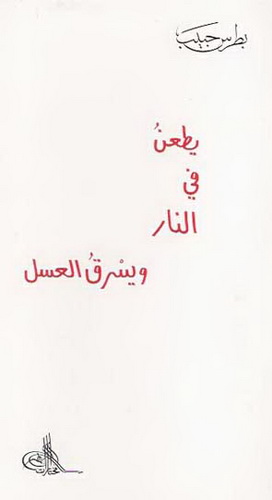 بطرس حبيب
يطعنُ
في
النار
ويسْرقُ العسل